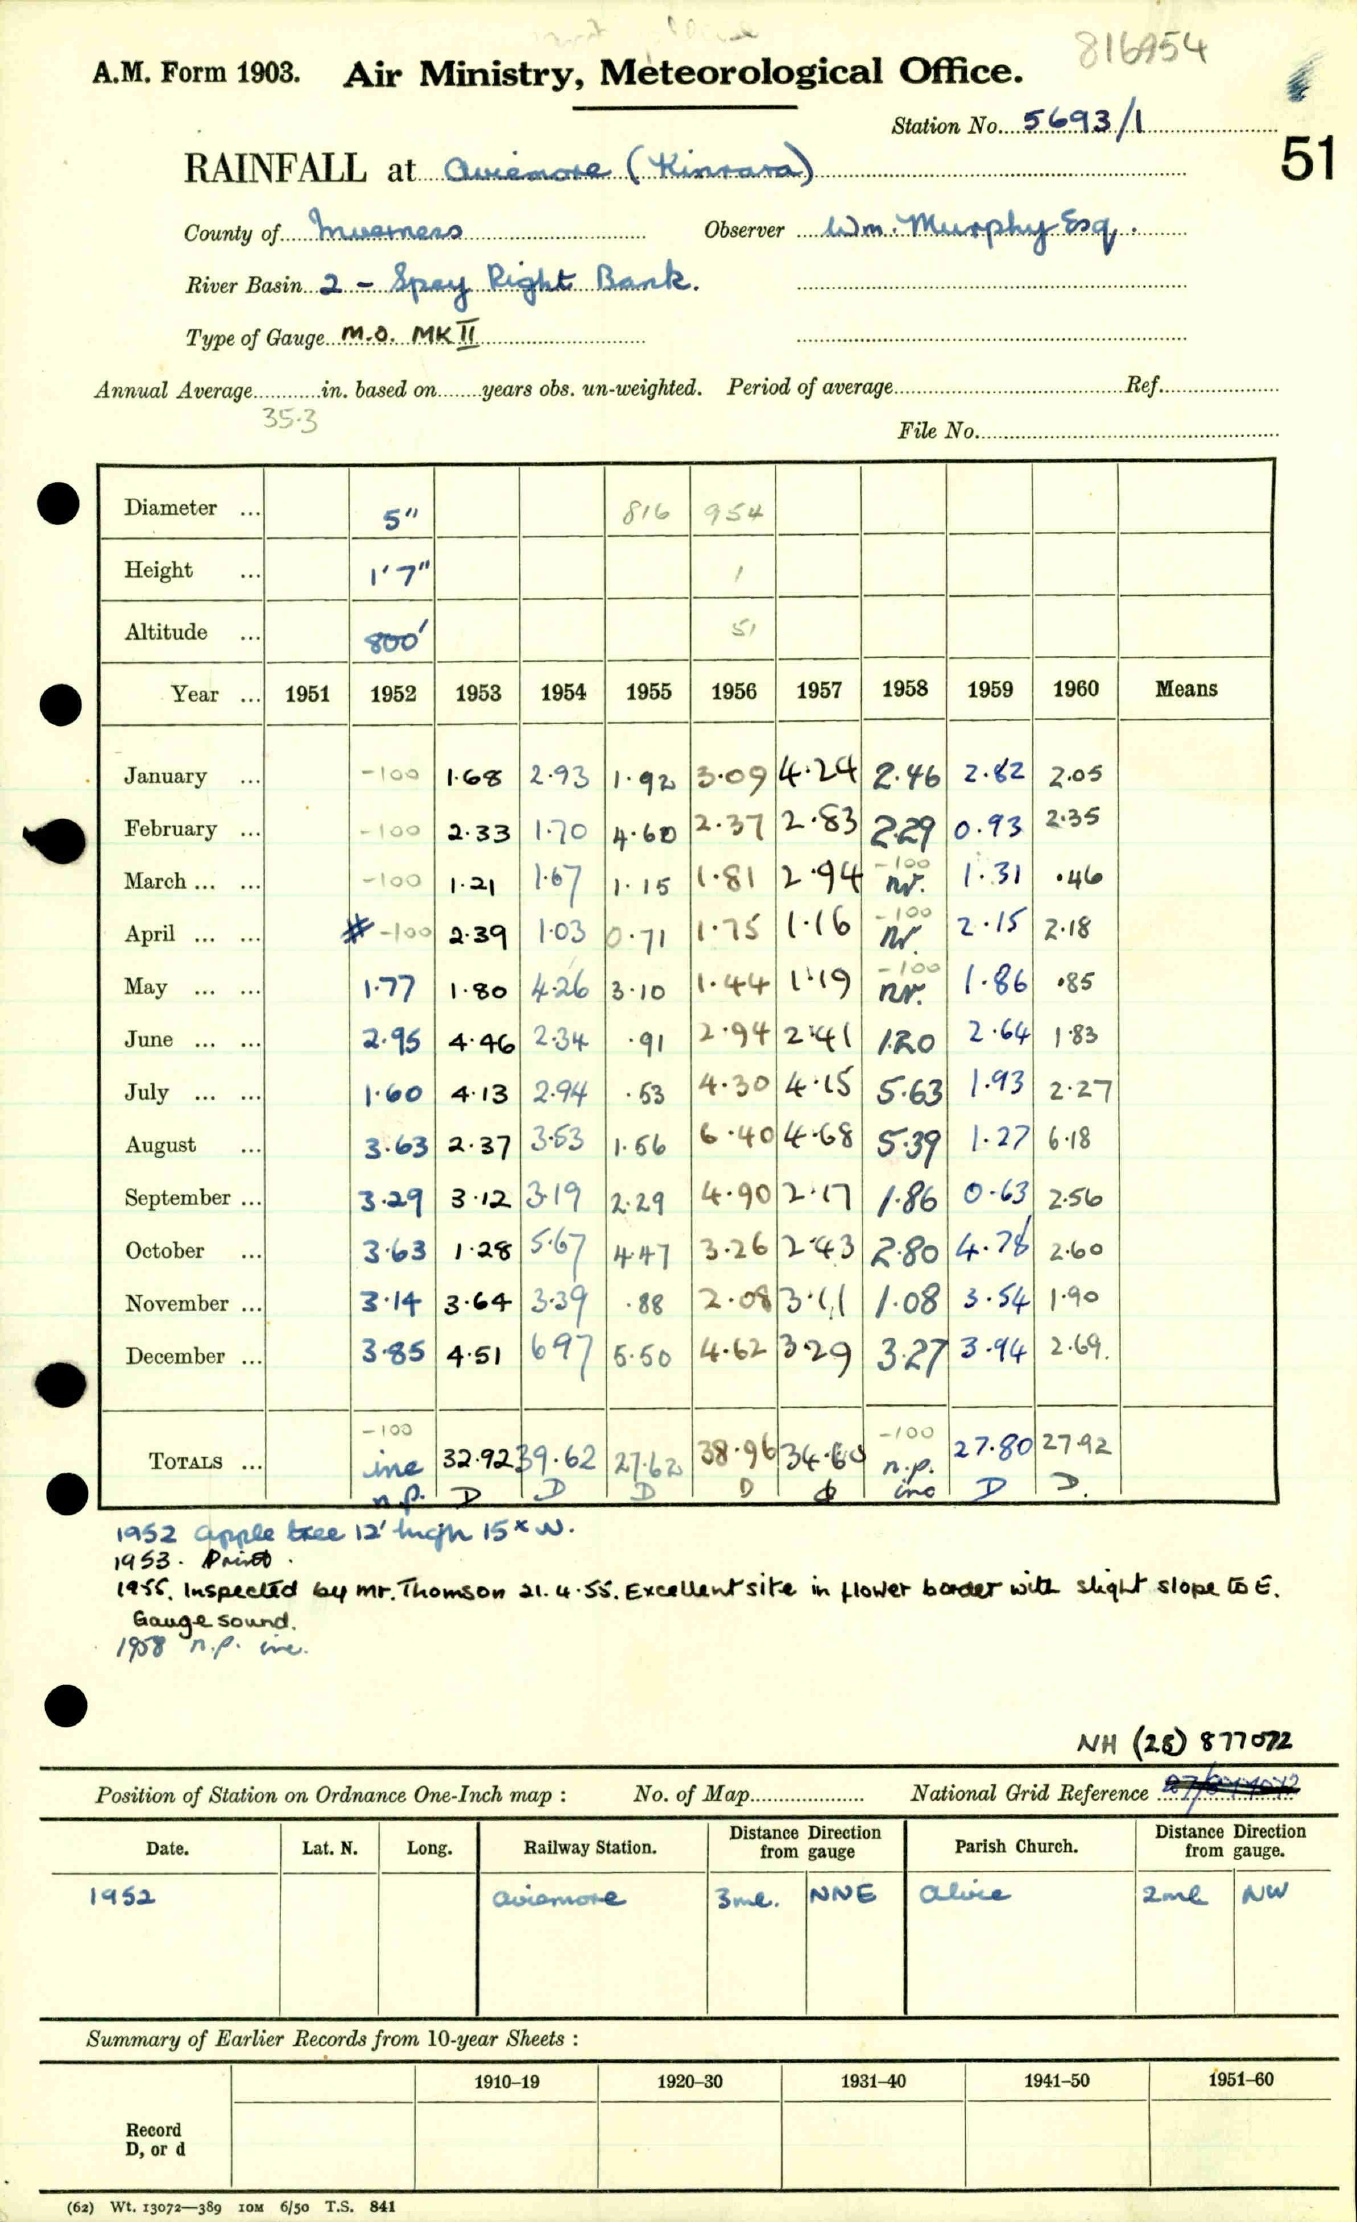 816954
A.M. Form 1903. Air Ministry, Meteorological Office.
Station No. 5693/1
51
RAINFALL at Aviemore (Kinrara)
County of Inverness Observer Wm. Murphy Esq.
River Basin 2 - Spey Right Bank.
Type of Gauge M.O. MK II
Annual Average in. based on years obs. un-weighted. Period of average Ref.
35.3
File No.
Diameter ... 5" 816 954
Height ... 1'7" 1
Altitude ... 800' 51
Year ... 1951 1952 1953 1954 1955 1956 1957 1958 1959 1960 Means
January ... -100 1.68 2.93 1.92 3.09 4.24 2.46 2.82 2.05
February ... -100 2.33 1.70 4.60 2.37 2.83 2.29 0.93 2.35
March ... ... -100 1.21 1.67 1.15 1.81 2.94 -100 nr. 1.31 .46
April ... ... # -100 2.39 1.03 0.71 1.75 1.16 -100 nr. 2.15 2.18
May ... ... 1.77 1.80 4.26 3.10 1.44 1.19 -100 nr. 1.86 .85
June ... ... 2.95 4.46 2.34 .91 2.94 2.41 1.20 2.64 1.83
July ... ... 1.60 4.13 2.94 .53 4.30 4.15 5.63 1.93 2.27
August ... 3.63 2.37 3.53 1.56 6.40 4.68 5.39 1.27 6.18
September ... 3.29 3.12 3.19 2.29 4.90 2.17 1.86 0.63 2.56
October ... 3.63 1.28 5.67 4.47 3.26 2.43 2.80 4.78 2.60
November ... 3.14 3.64 3.39 .88 2.08 3.11 1.08 3.54 1.90
December ... 3.85 4.51 6.97 5.50 4.62 3.29 3.27 3.94 2.69.
-100 -100
TOTALS ... inc 32.92 39.62 27.62 38.96 34.60 n.p. 27.80 27.92
n.p. D D D D D inc D D.
1952 apple tree 12' high 15 x W.
1953. Print.
1955. Inspected by Mr. Thomson 21.4.55. Excellent site in flower border with slight slope to E.
Gauge sound.
1958 n.p. inc.
NH (28) 877072
Position of Station on Ordnance One-Inch map : No. of Map National Grid Reference
Date. Lat. N. Long. Railway Station. Distance Direction from gauge Parish Church. Distance Direction from gauge.
1952 Aviemore 3ml. NNE Alvie 2ml NW
Summary of Earlier Records from 10-year Sheets :
1910–19 1920–30 1931–40 1941–50 1951–60
Record
D, or d
(62) Wt. 13072—389 10M 6/50 T.S. 841